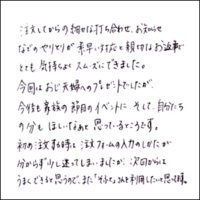 注文してからの細かな打ち合わせ、お知らせ
などのやりとりが素早い対応と親切なお返事で
とても気持ちよくスムーズにできました。
今回はおじ夫婦へのプレゼントでしたが、
今後も家族の節目のイベントに、そして、自分たち
の分もほしいなぁと思っているところです。
初め注文する時は、注文フォームの入力のしかたが
分からず少し迷ってしまいましたが、次回からは
うまくできると思うので、また「そらそう」さんを利用したいと思って